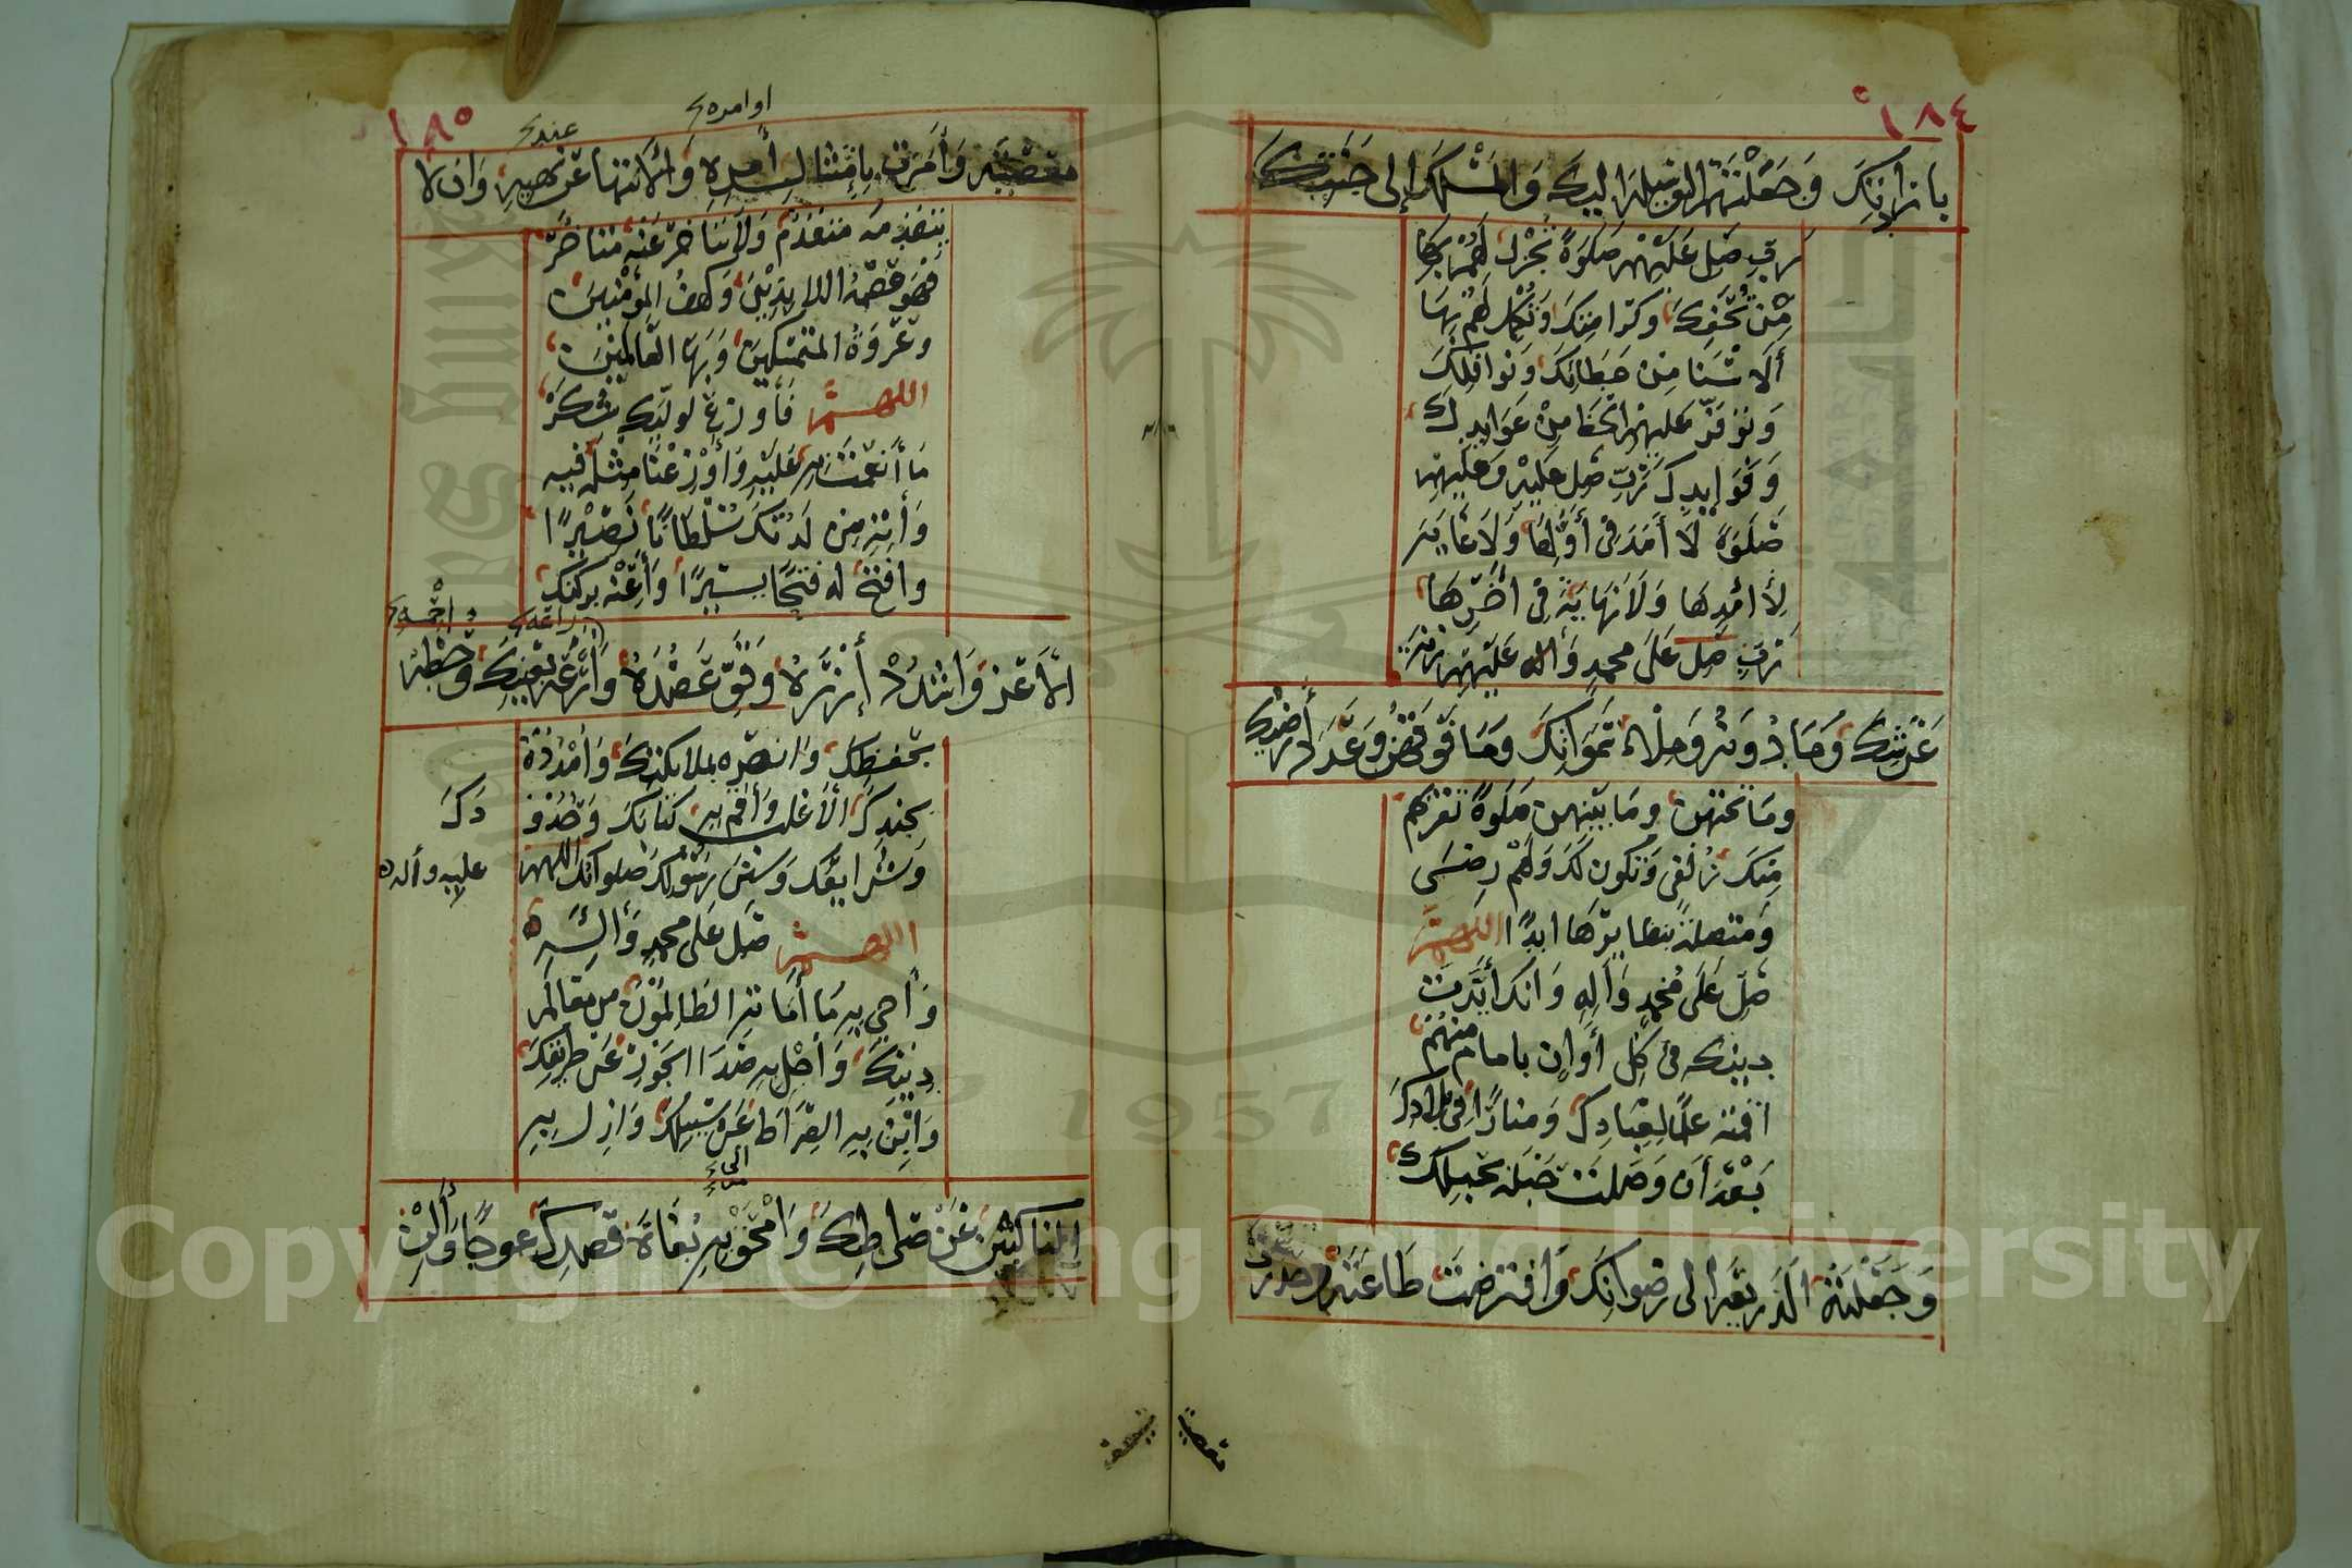 ١٨٤
بارادتك وجعلتهم الوسيلة اليك والمسلك إلى جنتك
رب صل عليهم صلوة تجزل لهم بها
من تحفك وكرامتك وتكمل لهم بها
ألاشيا من عطاياك ونوافلك
وتوفر عليهم الحظ من عوايدك
وفوايدك رب صل عليه وعليهم
صلوة لا أمد في أولها ولا غاية
لأمدها ولا نهاية في اخرها
رب صل على محمد وأله عليهم زنة
عرشك وما دونه وملاء سمواتك وما فوقهن وعدد أرضيك
وما تحتهن وما بينهن صلوة تقربهم
منك زلفى وتكون لك ولهم رضى
ومتصلة بنظايرها ابدا اللهم
صل على محمد وأله وانك أيدت
دينك في كل أوان بامام منهم
اقمته علما لعبادك ومنارا في بلادك
بعد أن وصلت حبله بحبلك
وجعلته الذريعة الى رضوانك وافترضت طاعته وحذرت
معصيته
١٨٥
اوامره
عند
معصيته وأمرت بامتثال أمره والانتهاء عن نهيه وان لا
يتقدمه متقدم ولا يتاخر عنه متاخر
فهو عصمة اللايذين وكهف المؤمنين
وعروة المتمسكين وبهاء العالمين
اللهم فأوزع لوليك شكر
ما أنعمت به عليه وأوزعنا مثله فيه
وأته من لدنك سلطانا نصيرا
وافتح له فتحا يسيرا وأعنه بركنك
الأعز واشدد أزره وقو عضده وأرعه بعينك وحطه
راعه
واحمه
بحفظك وانصره بملائكتك وامدده
بجندك الأغلب وأقم به كتابك وحدود
دك
وشرايعك وسنن رسولك صلواتك اللهم
عليه وأله
اللهم صل على محمد وأله
وأحي به ما أماته الظالمون من معالم
دينك وأجل به صداء الجور عن طريقك
وابن به الضراء عن سبيلك وازل به
الناكبين عن صراطك وامحق به بغاة قصدك عوجا وألن